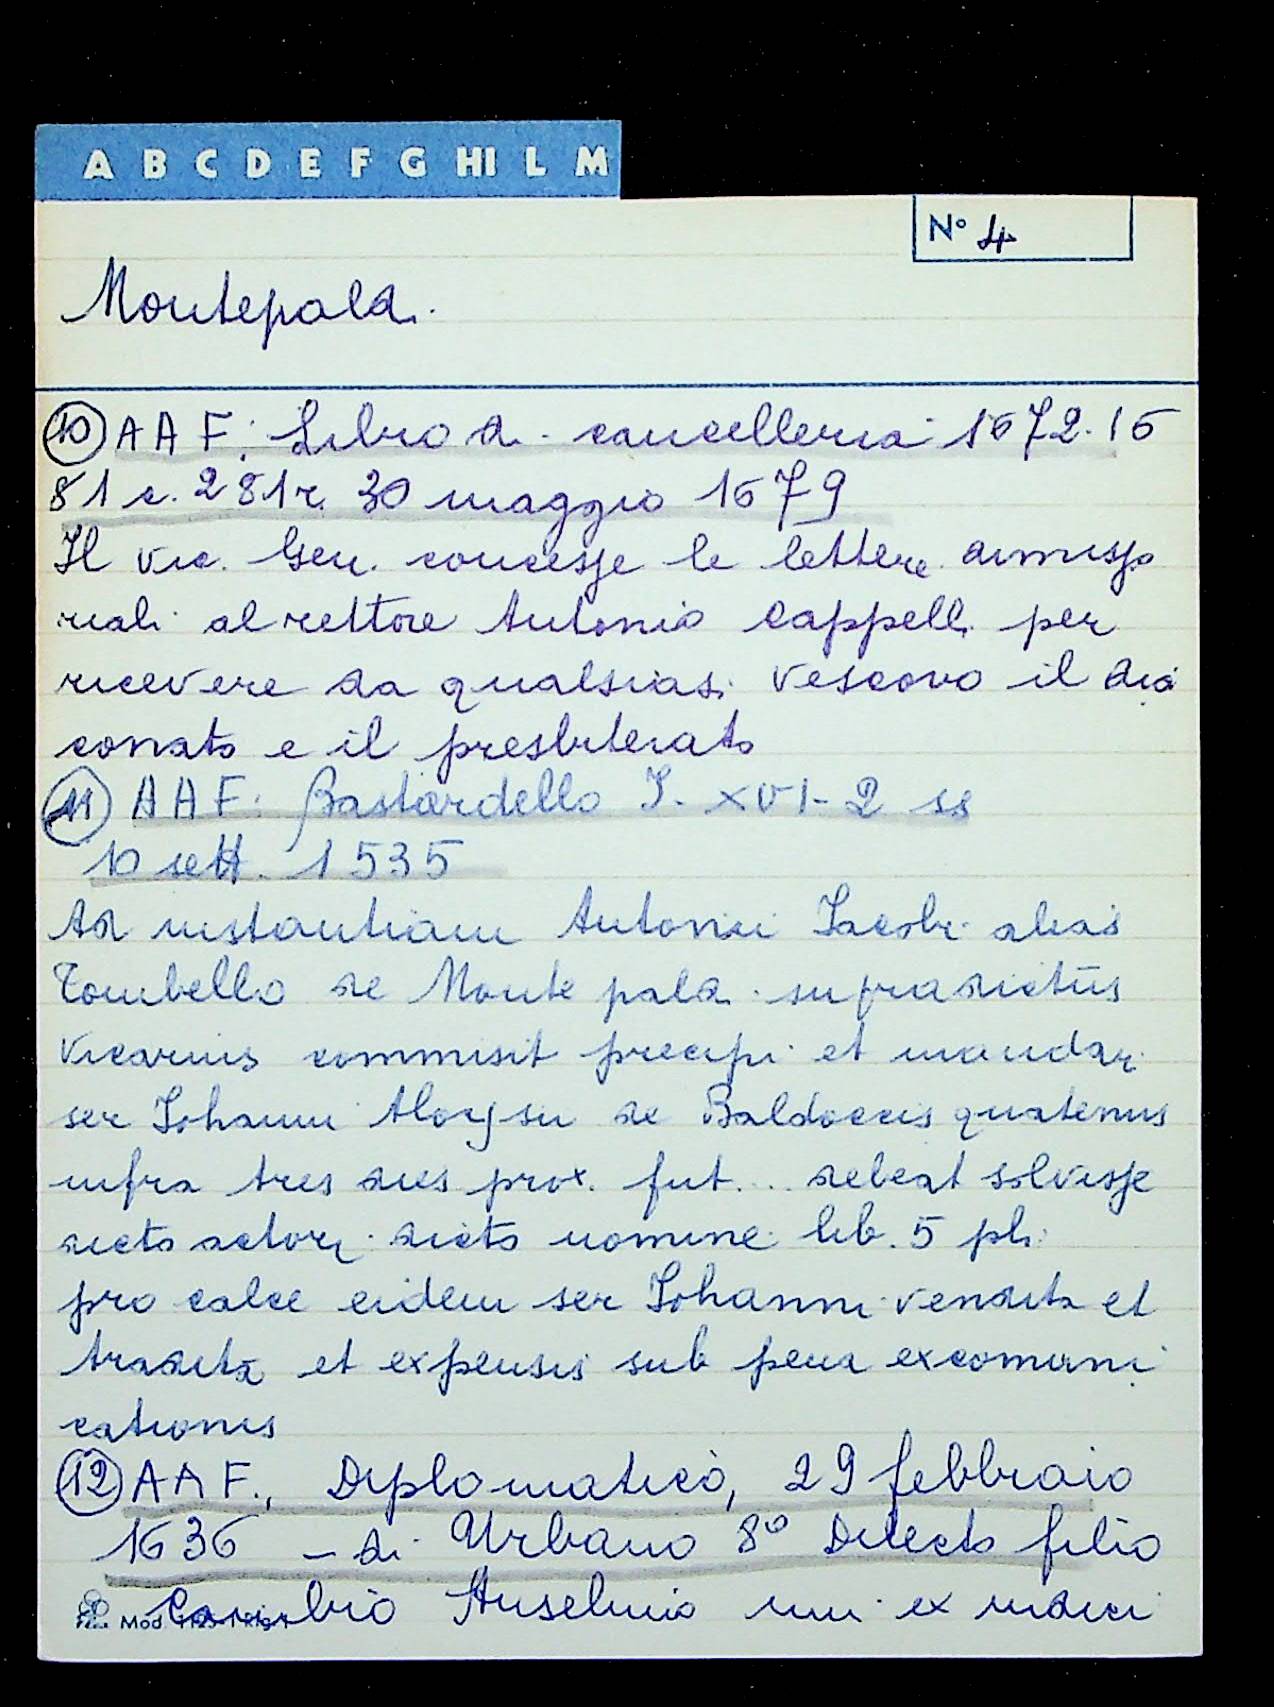 A B C D E F G HI L M
N° 4
Montepaldi
10 AAF. Libro di cancelleria 1672-16
81 c. 281r. 30 maggio 1679
Il vic. Gen. concesse le lettere dimisso
riali al rettore Antonio Cappelli per
ricevere da qualsiasi vescovo il dia
conato e il presbiterato
11 AAF. Bastardello I. XVI-2 ss
10 sett. 1535
Ad instantiam Antonii Iacobi alias
Tombello de Monte paldi supradictus
vicarius commisit precipi et mandari
ser Iohanni Aloysii de Baldoccis quatenus
infra tres dies prox. fut... debeat solvisse
dicto actori dicto nomine lib. 5 pli
pro calce eidem ser Iohanni vendita et
tradita et expensis sub pena excomuni
cationis
12 AAF., Diplomatico, 29 febbraio
1636 - di Urbano 8° Dilecto filio
Cambio Anselmio uni ex iudici
Mod.